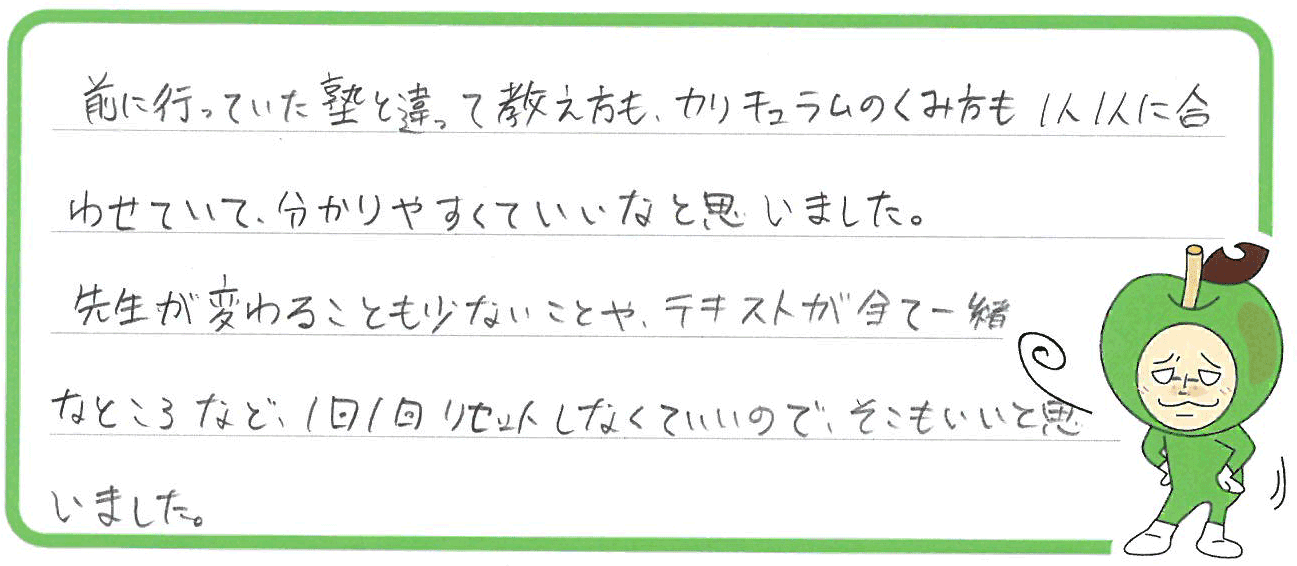 前に行っていた塾と違って教え方も、カリキュラムのくみ方も1人1人に合
わせていて、分かりやすくていいなと思いました。
先生が変わることも少ないことや、テキストが全て一緒
なところなど、1回1回リセットしなくていいので、そこもいいと思
いました。